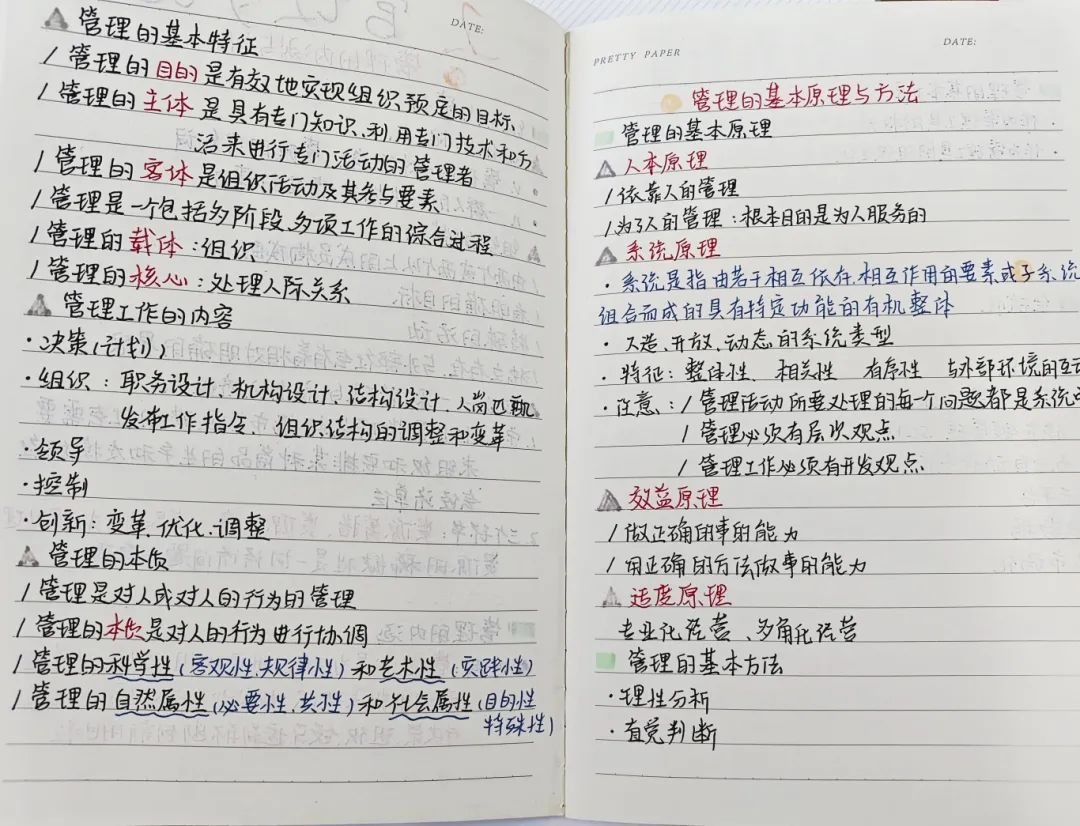 DATE:
管理的基本特征
/ 管理的目的是有效地实现组织预定的目标、
/ 管理的主体是具有专门知识、利用专门技术和方
法来进行专门活动的管理者
/ 管理的客体是组织活动及其参与要素
/ 管理是一个包括多阶段、多项工作的综合过程
/ 管理的载体：组织
/ 管理的核心：处理人际关系
管理工作的内容
·决策(计划)
·组织：职务设计、机构设计、结构设计、人岗匹配
发布工作指令、组织结构的调整和变革
·领导
·控制
·创新：变革、优化、调整
管理的本质
/ 管理是对人或对人的行为的管理
/ 管理的本质是对人的行为进行协调
/ 管理的科学性(客观性、规律性)和艺术性(实践性)
/ 管理的自然属性(必要性、共性)和社会属性(目的性
特殊性)
PRETTY PAPER
DATE:
管理的基本原理与方法
管理的基本原理
人本原理
/ 依靠人的管理
/ 为了人的管理：根本目的是为人服务的
系统原理
·系统是指由若干相互依存、相互作用的要素或子系统
组合而成的具有特定功能的有机整体
·人造、开放、动态的系统类型
·特征：整体性 相关性 有序性 与外部环境的互
·注意：/ 管理活动所要处理的每个问题都是系统
/ 管理必须有层次观点
/ 管理工作必须有开发观点
效益原理
/ 做正确的事的能力
/ 用正确的方法做事的能力
适度原理
专业化经营、多角化经营
管理的基本方法
·理性分析
·直觉判断